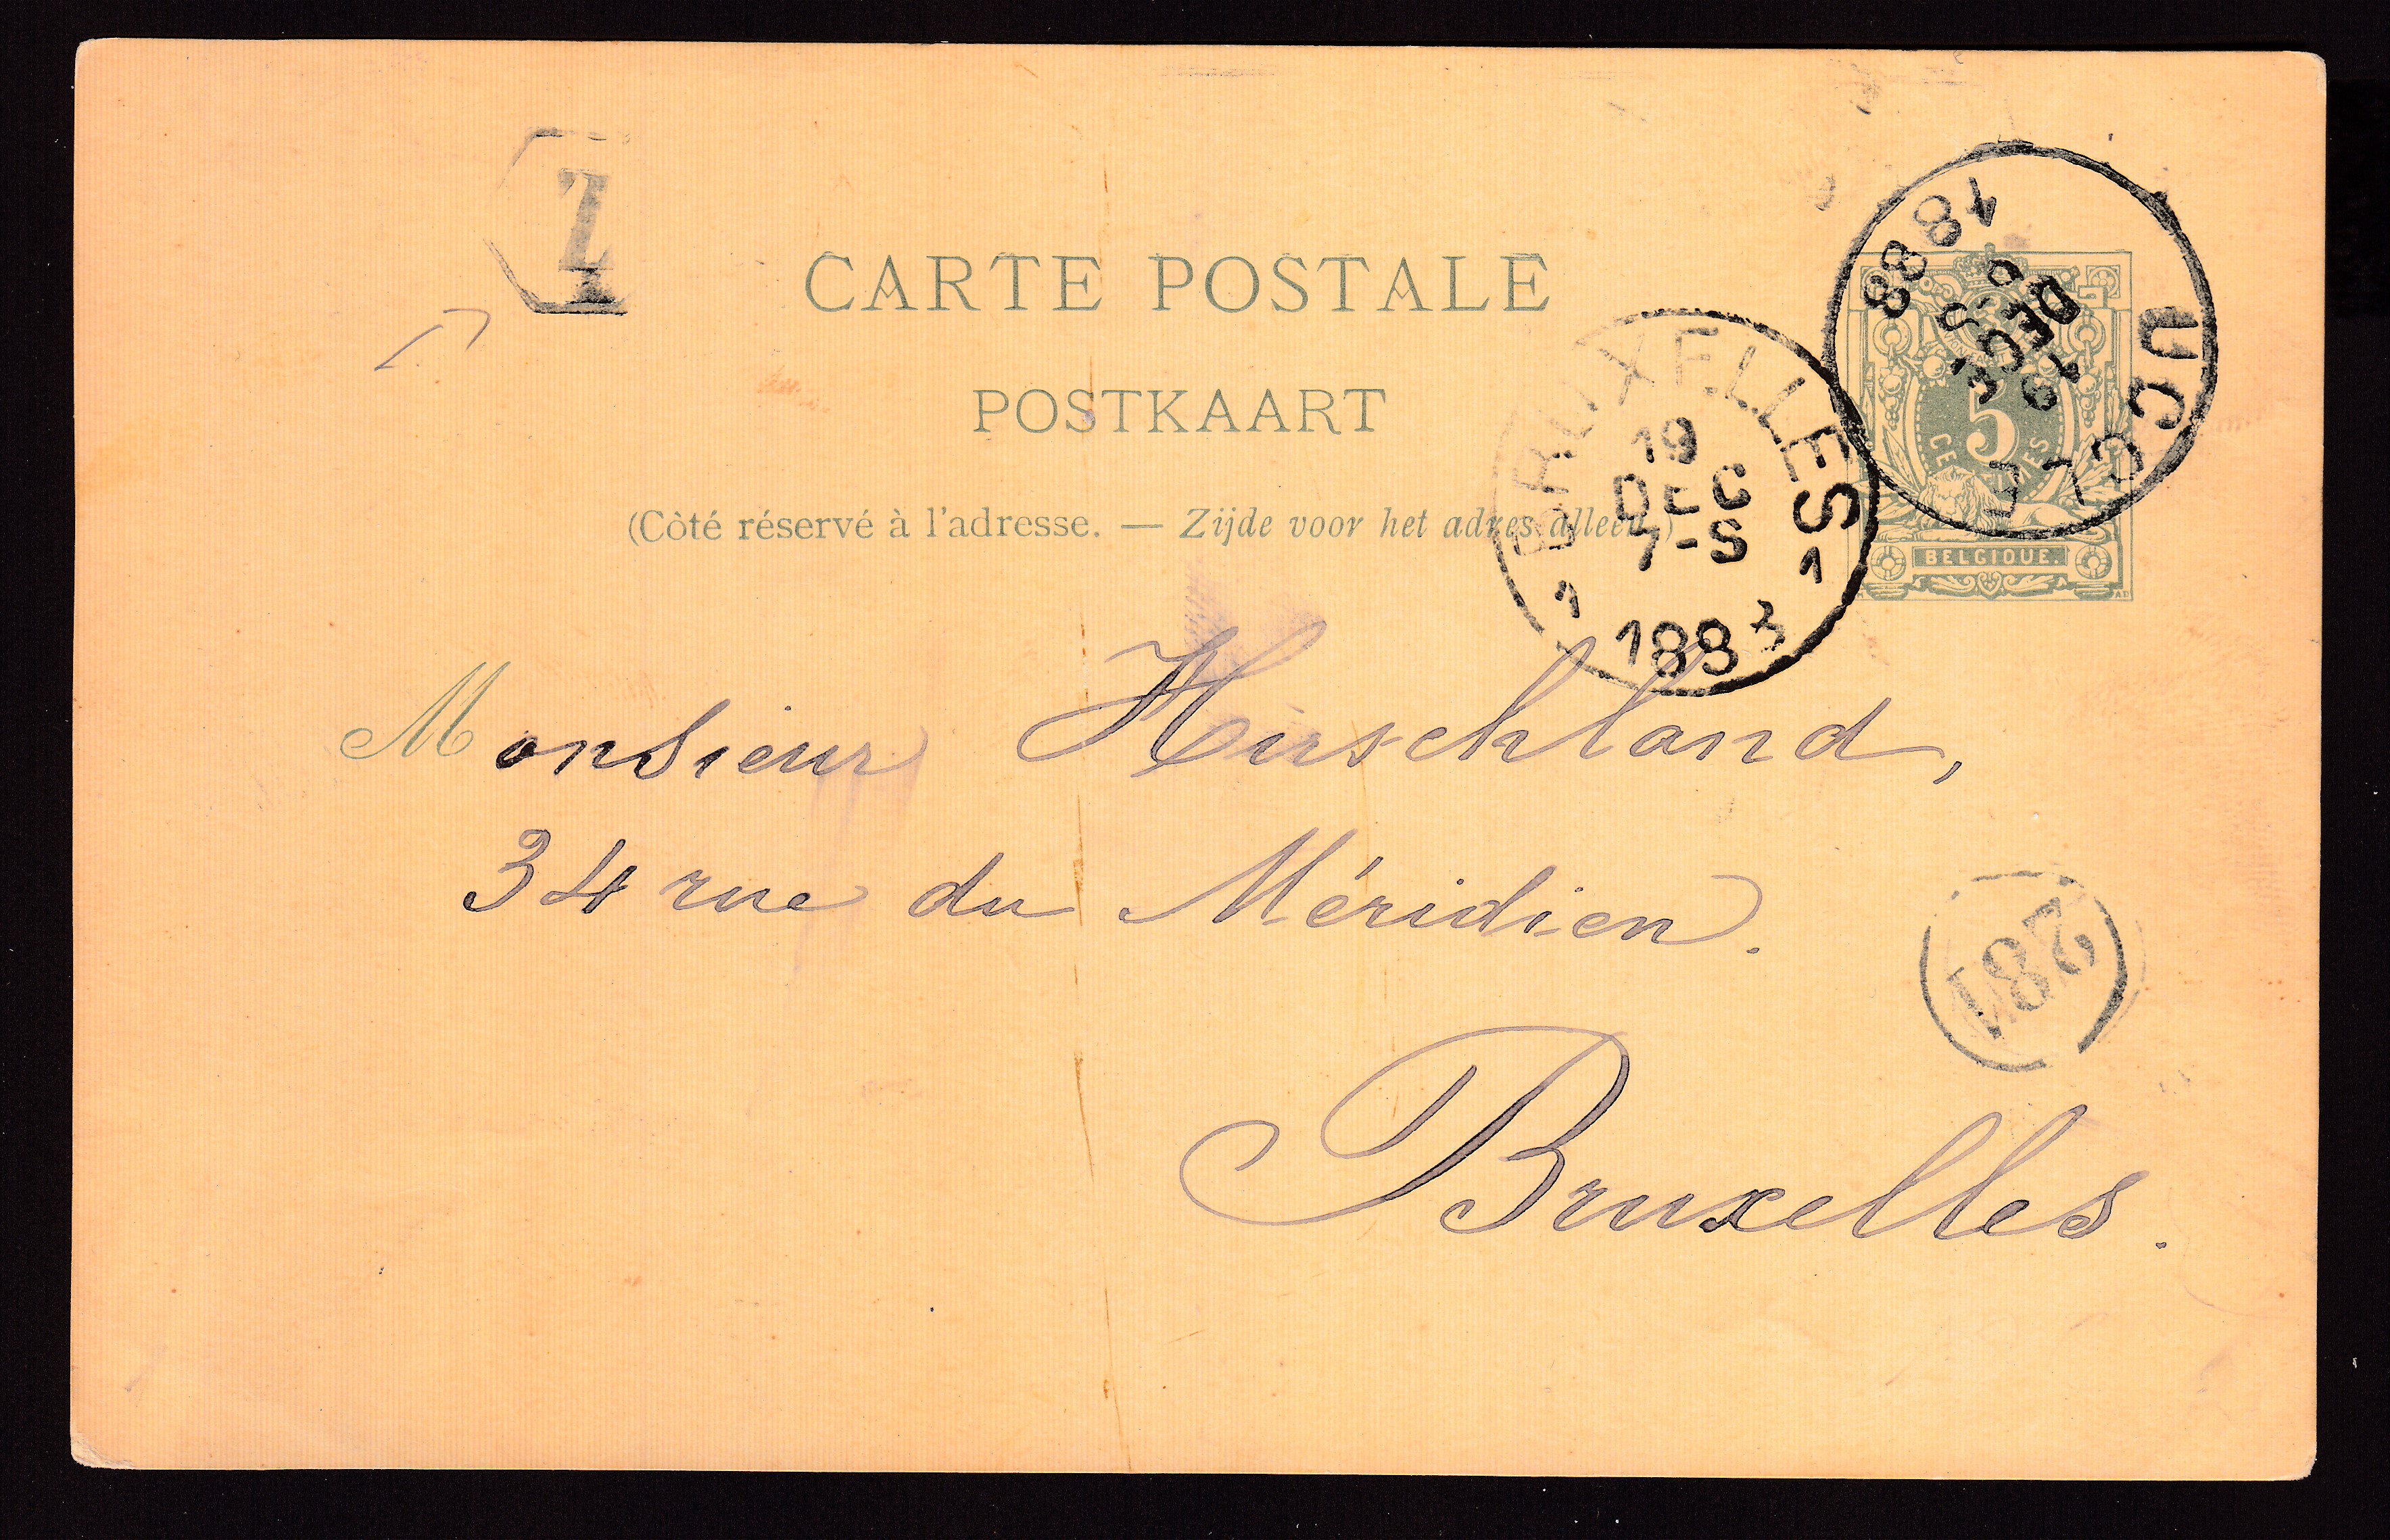 Z
CARTE POSTALE
POSTKAART
(Côté réservé à l'adresse. — Zijde voor het adres alleen.)
UCCLE
19
DEC
1888
5
CENTIMES
BELGIQUE.
BRUXELLES
19
DEC
7-S
1 1
1883
Monsieur Hirschland,
34 rue du Méridien.
281
Bruxelles.